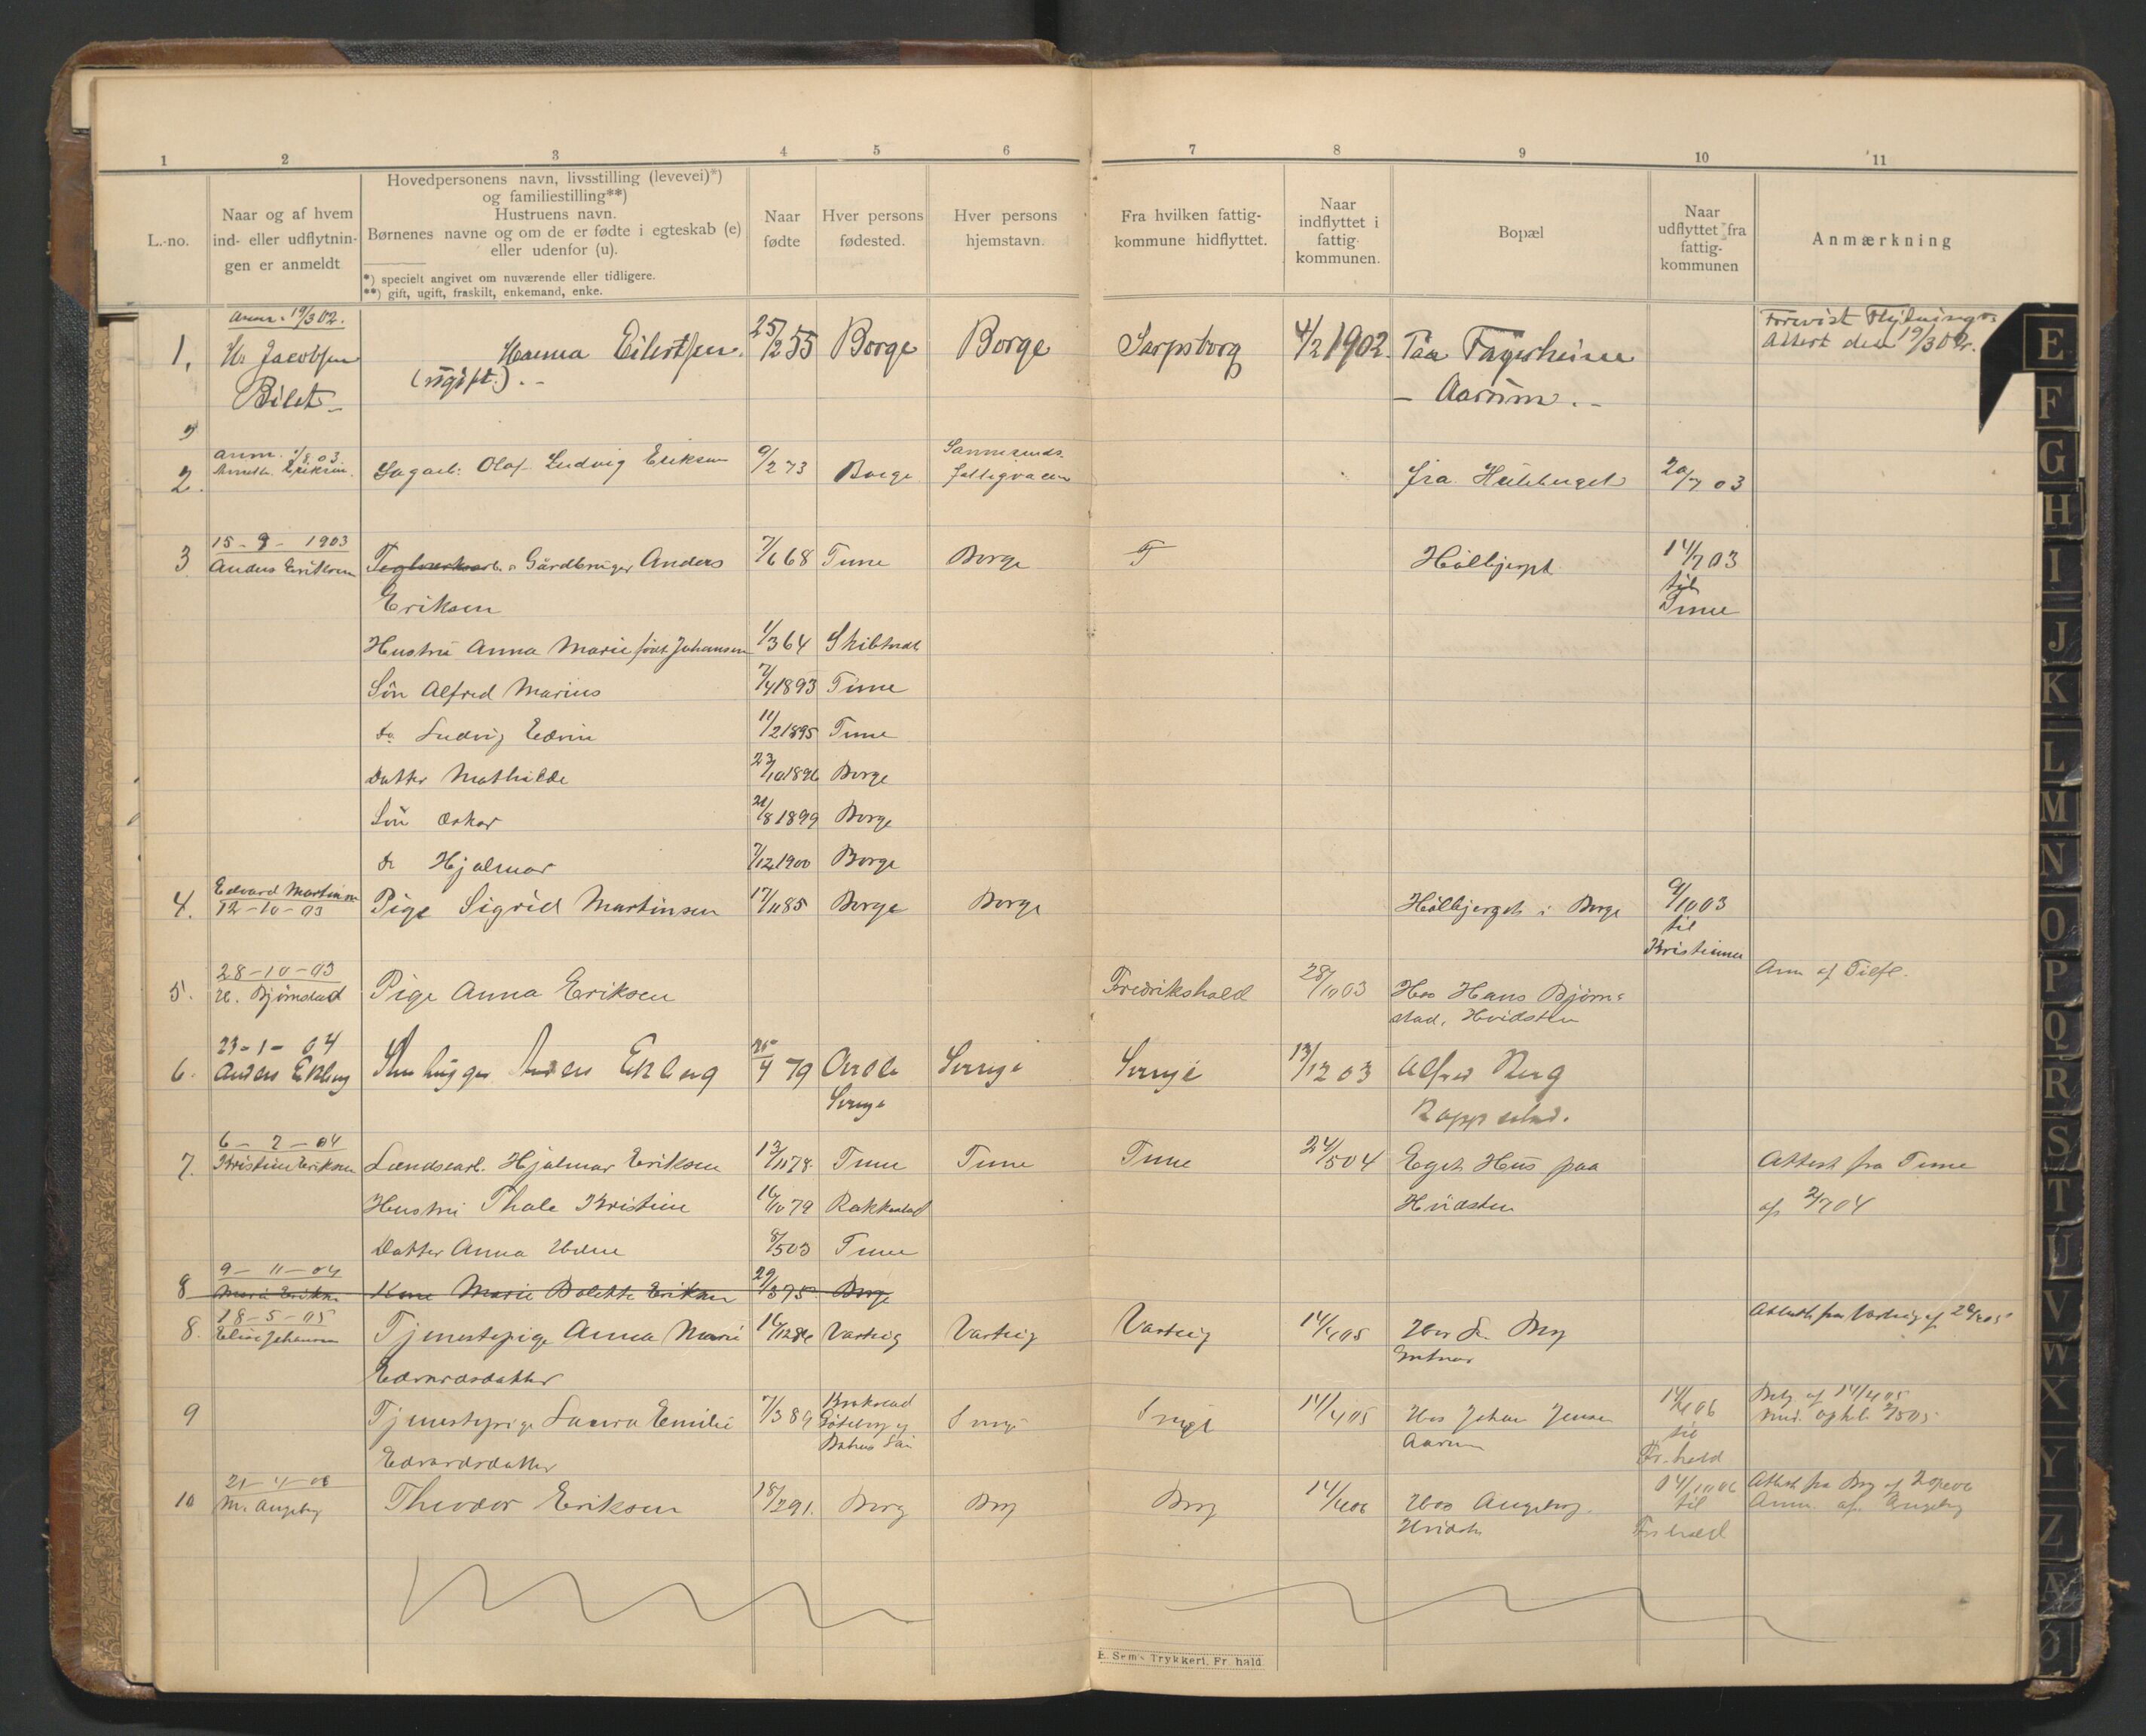 1 2 3 4 5 6 7 8 9 10 11
L.-no.
Naar og af hvem
ind- eller udflytnin-
gen er anmeldt
Hovedpersonens navn, livsstilling (levevei)*)
og familiestilling**)
Hustruens navn.
Børnenes navne og om de er fødte i egteskab (e)
eller udenfor (u).
*) specielt angivet om nuværende eller tidligere.
**) gift, ugift, fraskilt, enkemand, enke.
Naar
fødte
Hver persons
fødested.
Hver persons
hjemstavn.
Fra hvilken fattig-
kommune hidflyttet.
Naar
indflyttet i
fattig-
kommunen.
Bopæl
Naar
udflyttet fra
fattig-
kommunen
Anmærkning
Anm. 19/3 02. Forevist Flytnings-
1. Hr Jacobsen Hanna Eilertsen. 25/12 55 Borge Borge Sarpsborg 4/2 1902. Paa Fagerheim Attest den 19/3 02.
Bilet (ugift.) — Aarum.
anm. 1/8 03. Sannesunds
2. Eriksen. Sagarb. Olaf Ludvig Eriksen 9/2 73 Borge fattigvæsen fra 20/7 03
15-9-1903
3 Anders Eriksen Teglverksarb. Gårdbruger Anders 7/6 68 Tune Borge T Hålbjerget 14/7 03
Eriksen til
Tune
Hustru Anna Marie født Johansen 1/3 64 Skibtvedt
Søn Alfred Marius 7/4 1893 Tune
do Ludvig Edvin 11/2 1895 Tune
Datter Mathilde 23/10 1896 Borge
Søn Oskar 21/8 1899 Borge
do Hjalmar 7/12 1900 Borge
Edvard Martinsen
4. 12-10-03 Pige Sigrid Martinsen 17/11 85 Borge Borge Hålbjerget i Borge 9/10 03
til
Kristiania
28-10-03 Anm af Tilfl.
5. H. Bjørnstad Pige Anna Eriksen Fredrikshald 28/10 03 Hos Hans Bjørn-
stad, Hvidsten
23-1-04
6. Anders Ekberg Stenhugger Anders Ekberg 79 Sverige Sverige 13/12 03 Alfred Berg
Sverige
6-7-04
7. Kristine Eriksen Landsarb. Hjalmar Eriksen 13/11 78. Tune Tune Tune 24/5 04 Eget Hus paa Attest fra Tune
Hustru Thale Kristine 16/10 79 Rakkestad Hvidsten af 2/7 04
Datter Anna 8/5 03 Tune
9-11-04
8 Marie Eriksen Kone Marie Bolette Eriksen 29/3 75. Borge
18-5-05 Attest fra Varteig af
8. Elise Johansen Tjenestepige Anna Marie 16/12 86 Varteig Varteig Varteig 14/4 05 Hos Berg
Edvardsdatter
9 Tjenestepige Laura Emilie 7/3 89 Göteborg og Sverige Sverige 14/4 05 Hos Johan Jensen 14/4 06
Edvardsdatter Bahus Län Aarum til
Fr.hald
21-4-06
10 M. Angeberg Theodor Eriksen 18/2 91. Berg Berg Berg 14/4 06 Hos Angeberg. Attest fra Berg af
Hvidsten til Anm. af Angeberg
Fr.hald
E. Sem's Trykkeri, Fr. hald.
E
F
G
H
I
J
K
L
M
N
O
P
Q
R
S
T
U
V
W
X
Y
Z
Æ
Ø